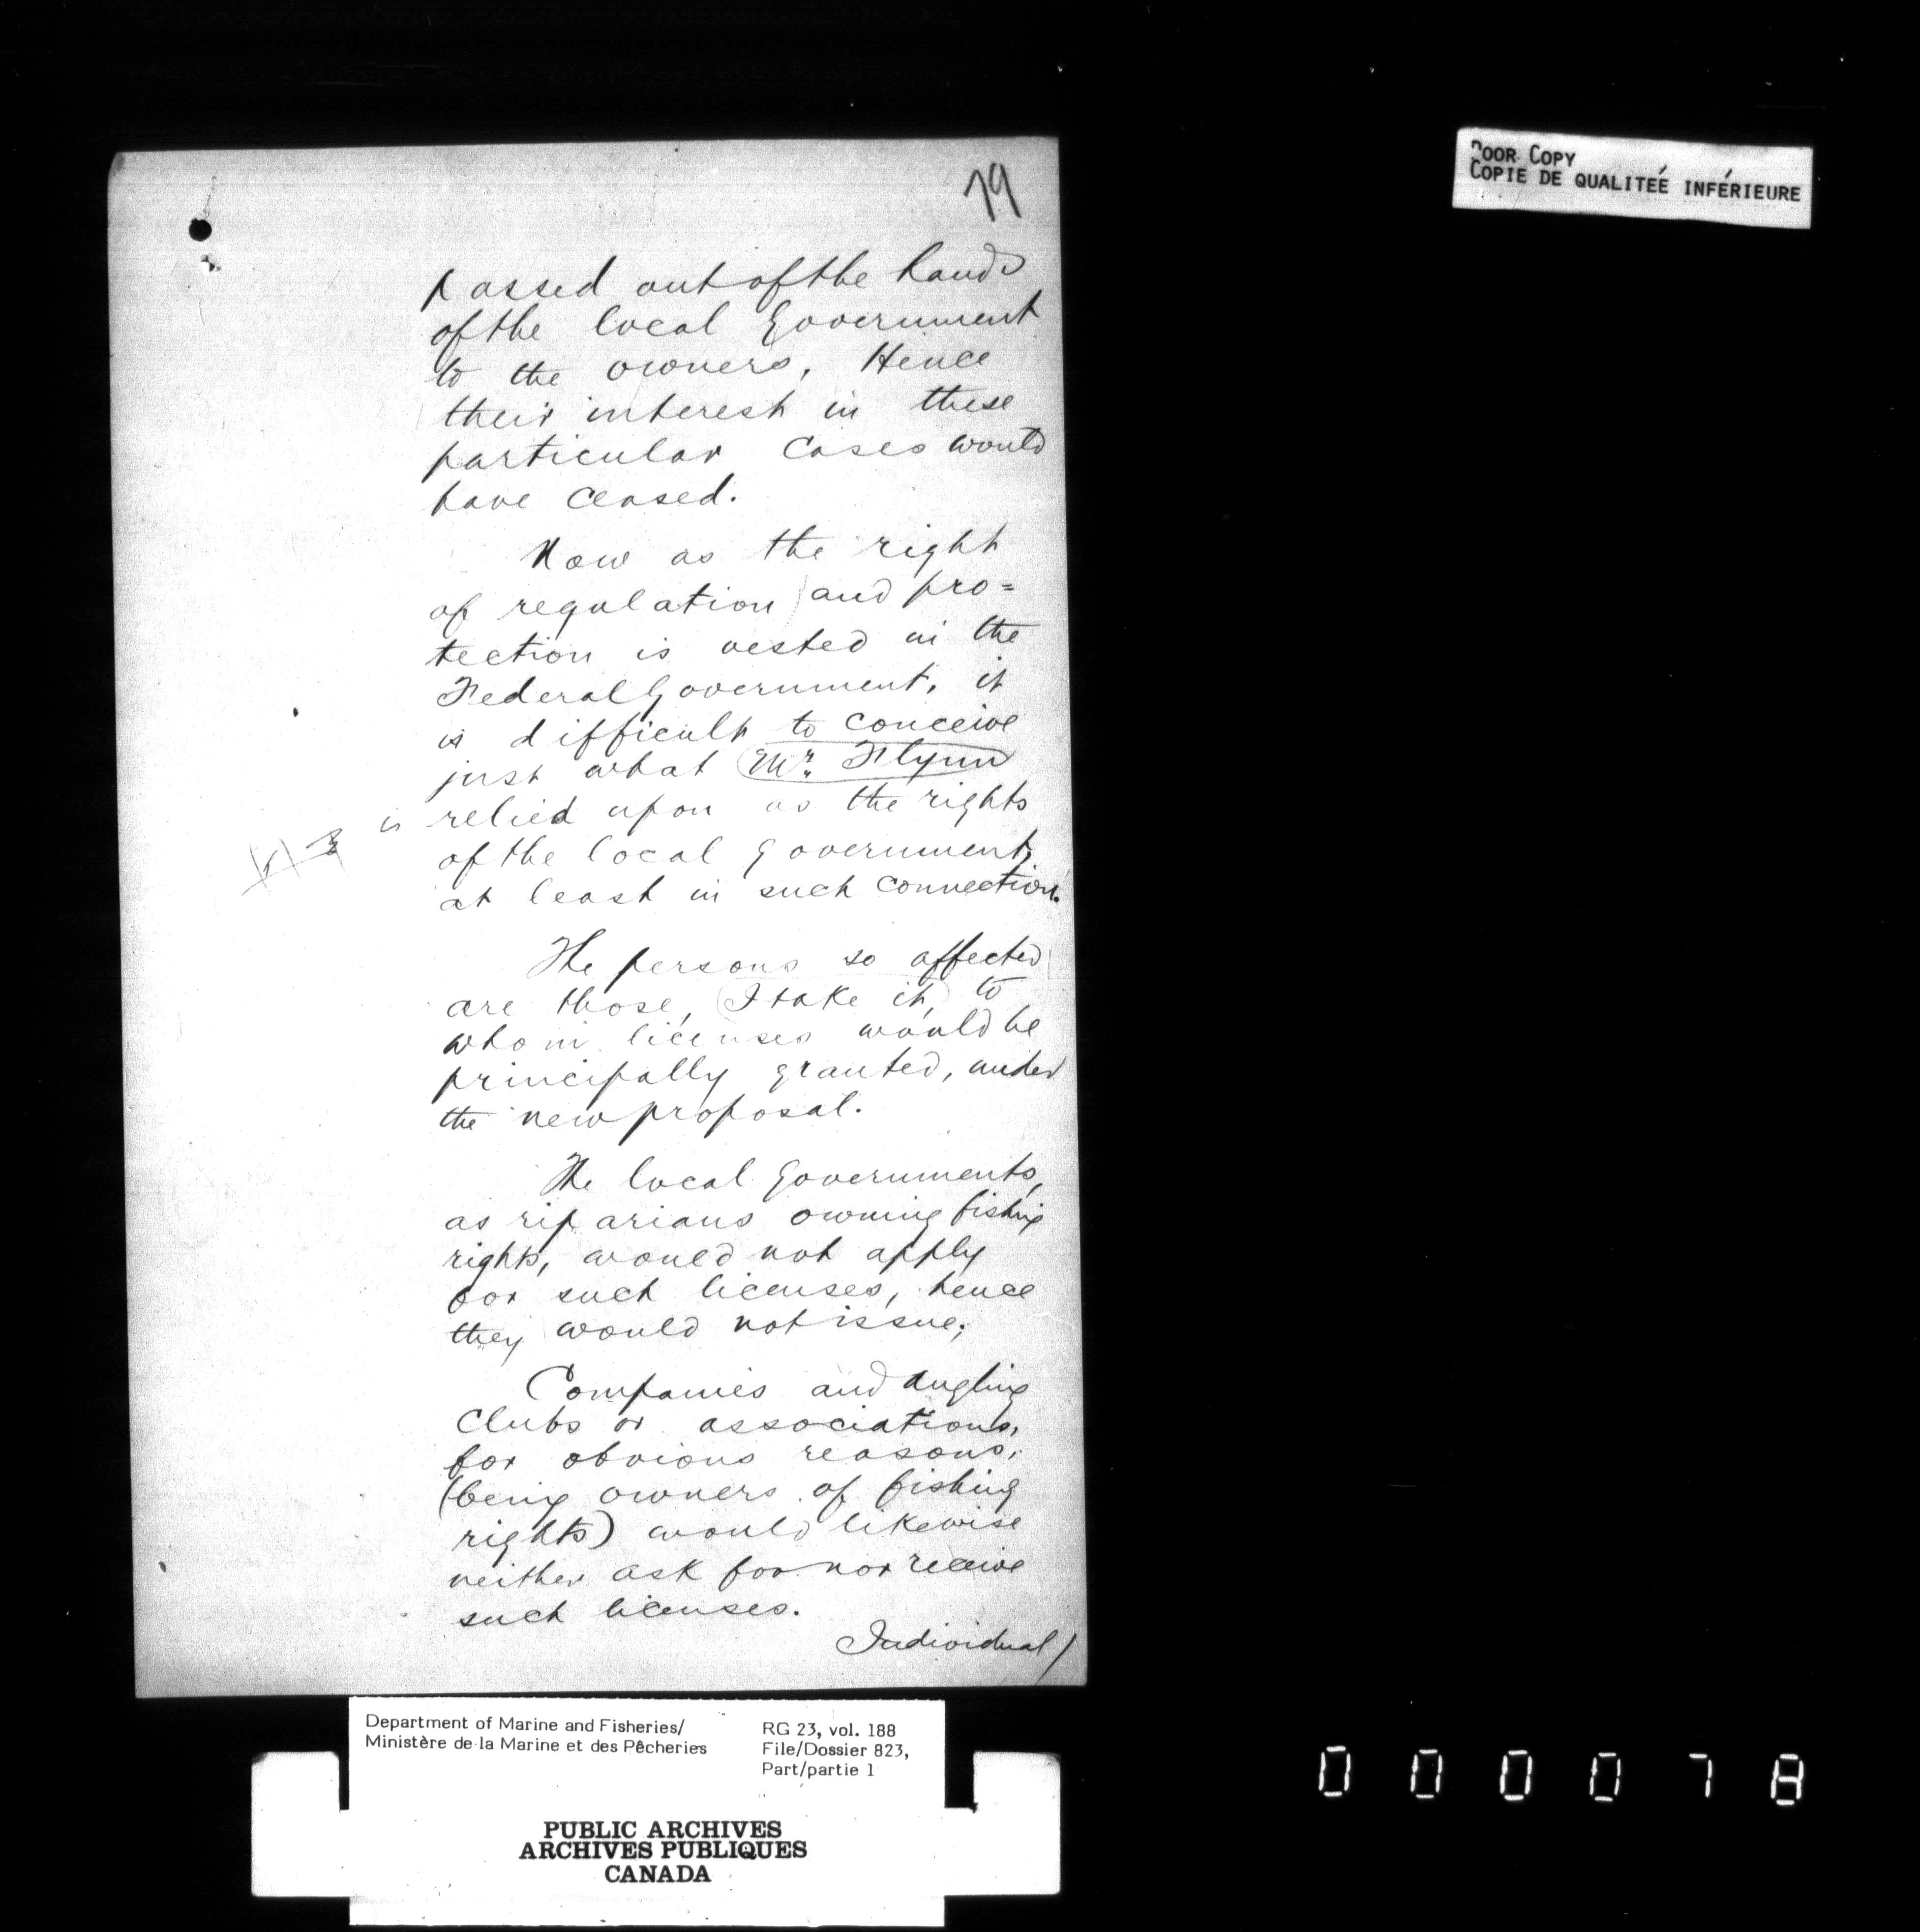 79
passed out of the hands
of the local Government
to the owners, Hence
their interest in these
particular cases would
have ceased.
Now as the right
of regulation and pro=
tection is vested in the
Federal Government, it
is difficult to conceive
just what Mr. Flynn
is relied upon as the rights
of the local government,
at least in such connection.
The persons so affected
are those, (I take it,) to
whom licenses would be
principally granted, under
the new proposal.
The local Governments,
as riparians owning fishing
rights, would not apply
for such licenses, hence
they would not issue;
Companies and angling
Clubs or associations,
for obvious reasons,
(being owners of fishing
rights) would likewise
neither ask for nor receive
such licenses.
Individual/
POOR COPY
COPIE DE QUALITEÉ INFÉRIEURE
Department of Marine and Fisheries/
Ministère de la Marine et des Pêcheries
RG 23, vol. 188
File/Dossier 823,
Part/partie 1
PUBLIC ARCHIVES
ARCHIVES PUBLIQUES
CANADA
000078